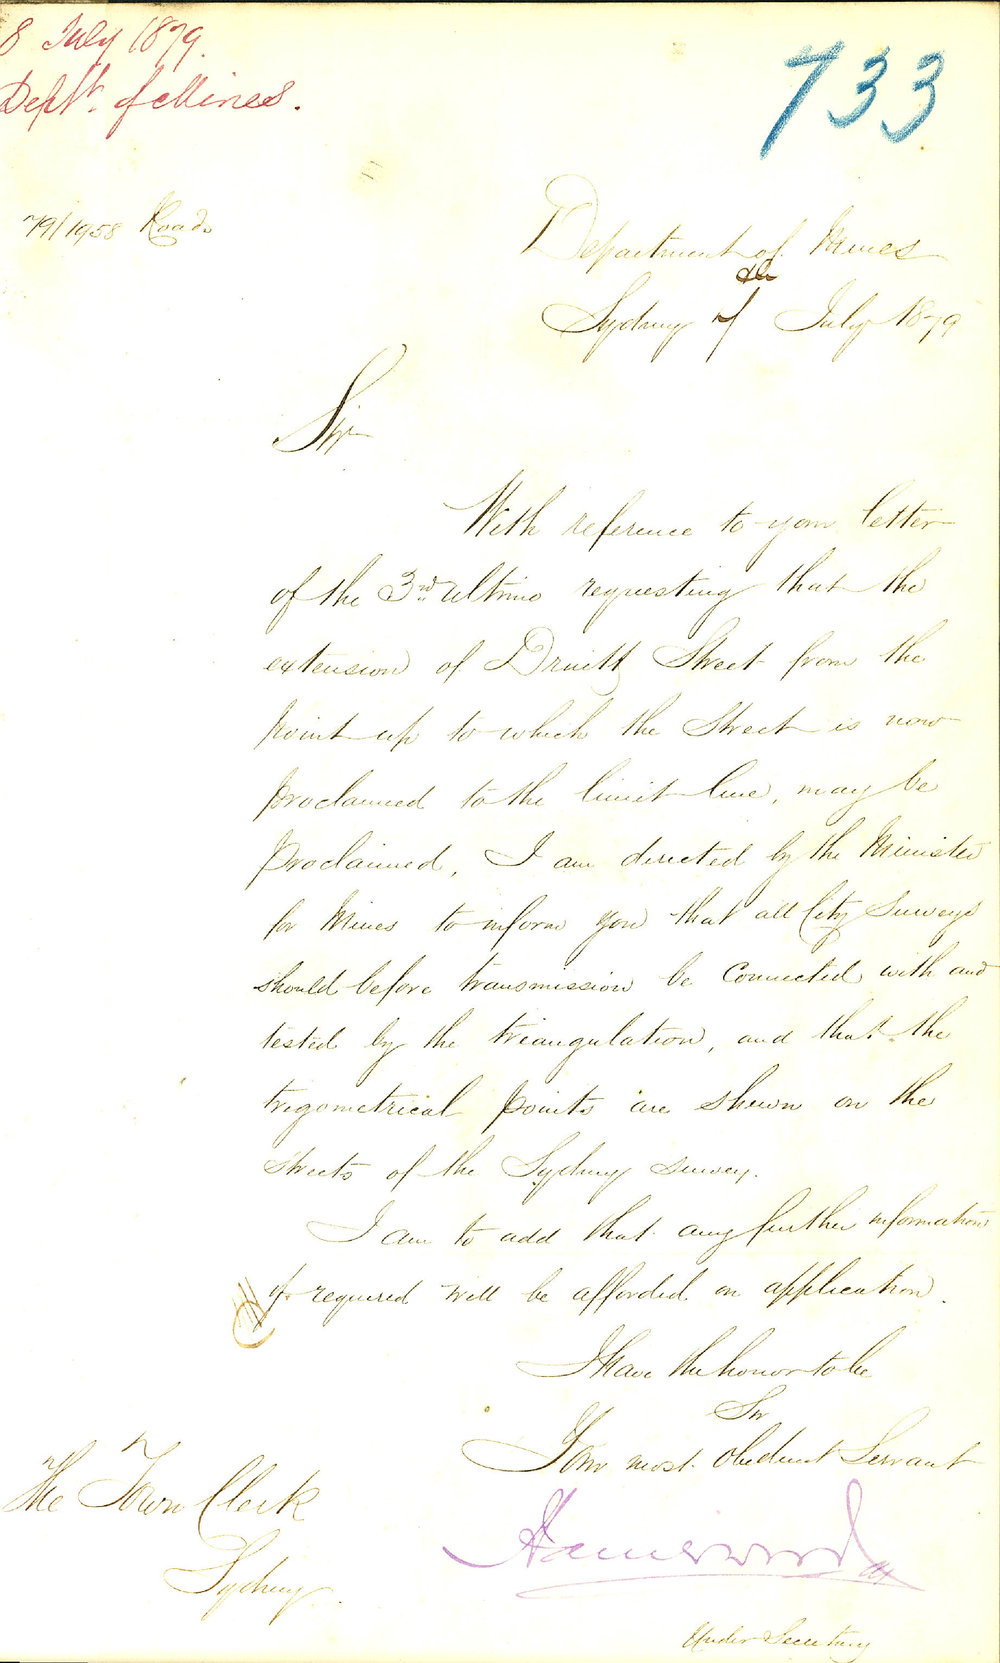 8 July 1879.
Deptt. of Mines.
733
79/1958 Roads
Department of Mines
Sydney 7th July 1879
Sir
With reference to your letter
of the 3rd ultimo requesting that the
extension of Druitt Street from the
point up to which the Street is now
proclaimed to the limit line, may be
proclaimed, I am directed by the Minister
for Mines to inform you that all City Surveys
should before transmission be connected with and
tested by the triangulation, and that the
trigometrical points are shewn on the
streets of the Sydney survey.
I am to add that any further information
if required will be afforded on application.
I have the honor to be
Sir
Your most obedient Servant
Under Secretary
The Town Clerk
Sydney.